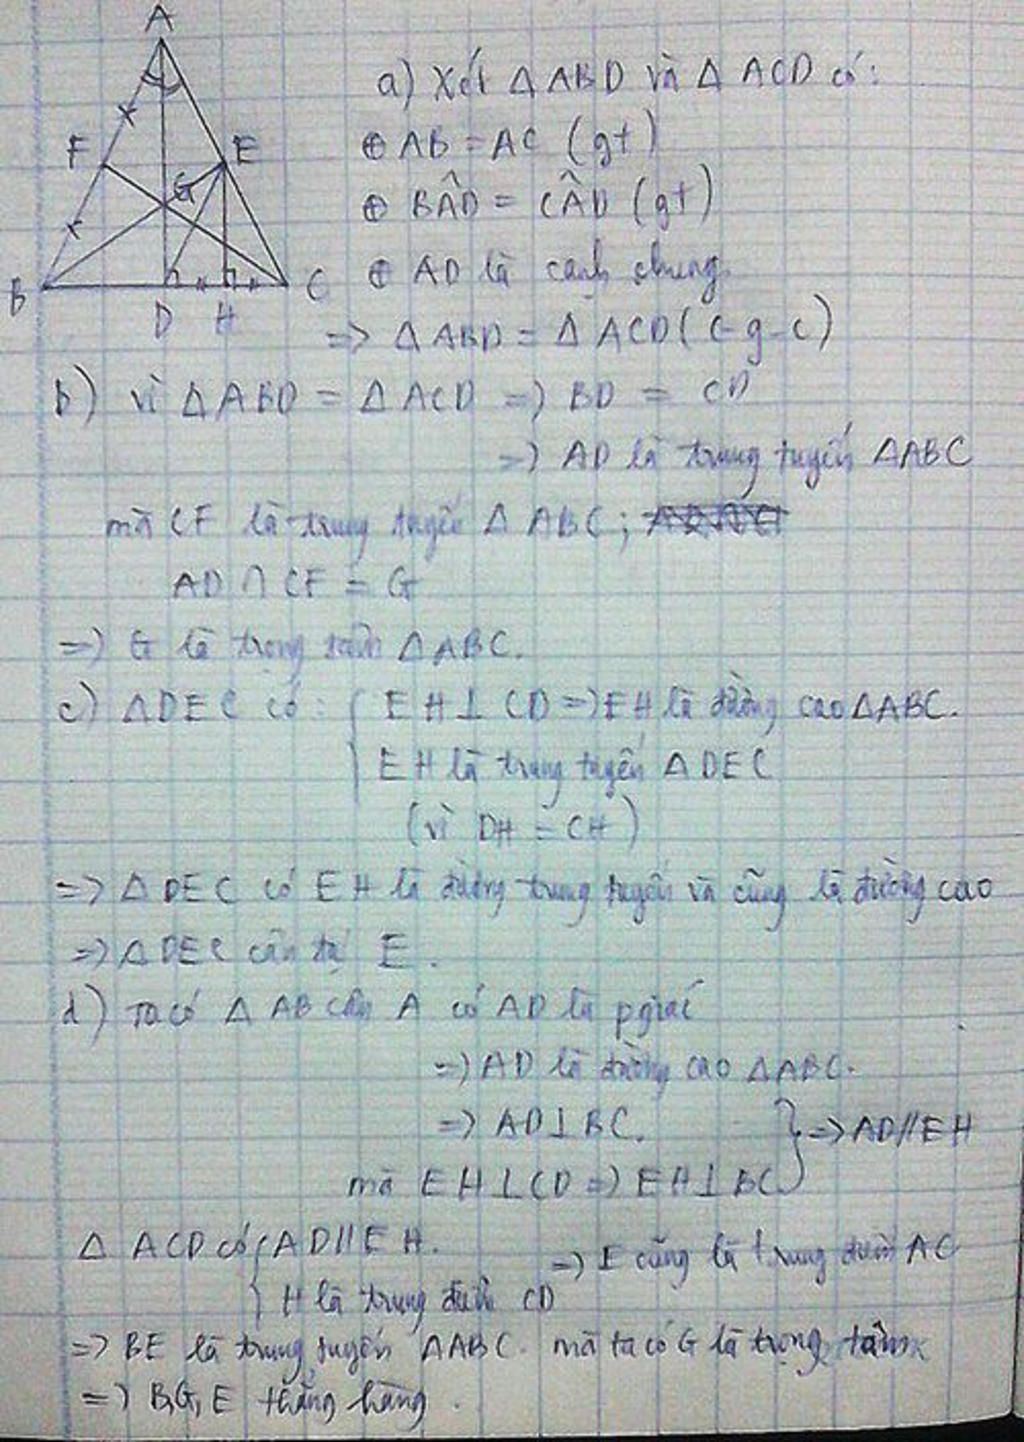 A
F
E
G
B
D
H
C
a) Xét Δ ABD và Δ ACD có:
⊕ AB = AC (gt)
⊕ BÂD = CÂD (gt)
⊕ AD là cạnh chung.
=> Δ ABD = Δ ACD (c-g-c)
b) vì Δ ABD = Δ ACD => BD = CD
=> AD là trung tuyến ΔABC
mà CF là trung tuyến Δ ABC;
AD ∩ CF = G
=> G là trọng tâm ΔABC.
c) ΔDEC có: { EH⊥ CD => EH là đường cao ΔABC.
EH là trung tuyến Δ DEC
(vì DH = CH)
=> Δ DEC có EH là đường trung tuyến và cũng là đường cao
=> Δ DEC cân tại E.
d) Ta có Δ AB cân A có AD là pgiác
=> AD là đường cao ΔABC.
=> AD⊥BC. } => AD//EH
mà EH⊥CD => EH⊥BC
Δ ACD có { AD//EH.
H là trung điểm CD
=> E cũng là trung điểm AC
=> BE là trung tuyến ΔABC. mà ta có G là trọng tâm
=> B,G,E thẳng hàng.